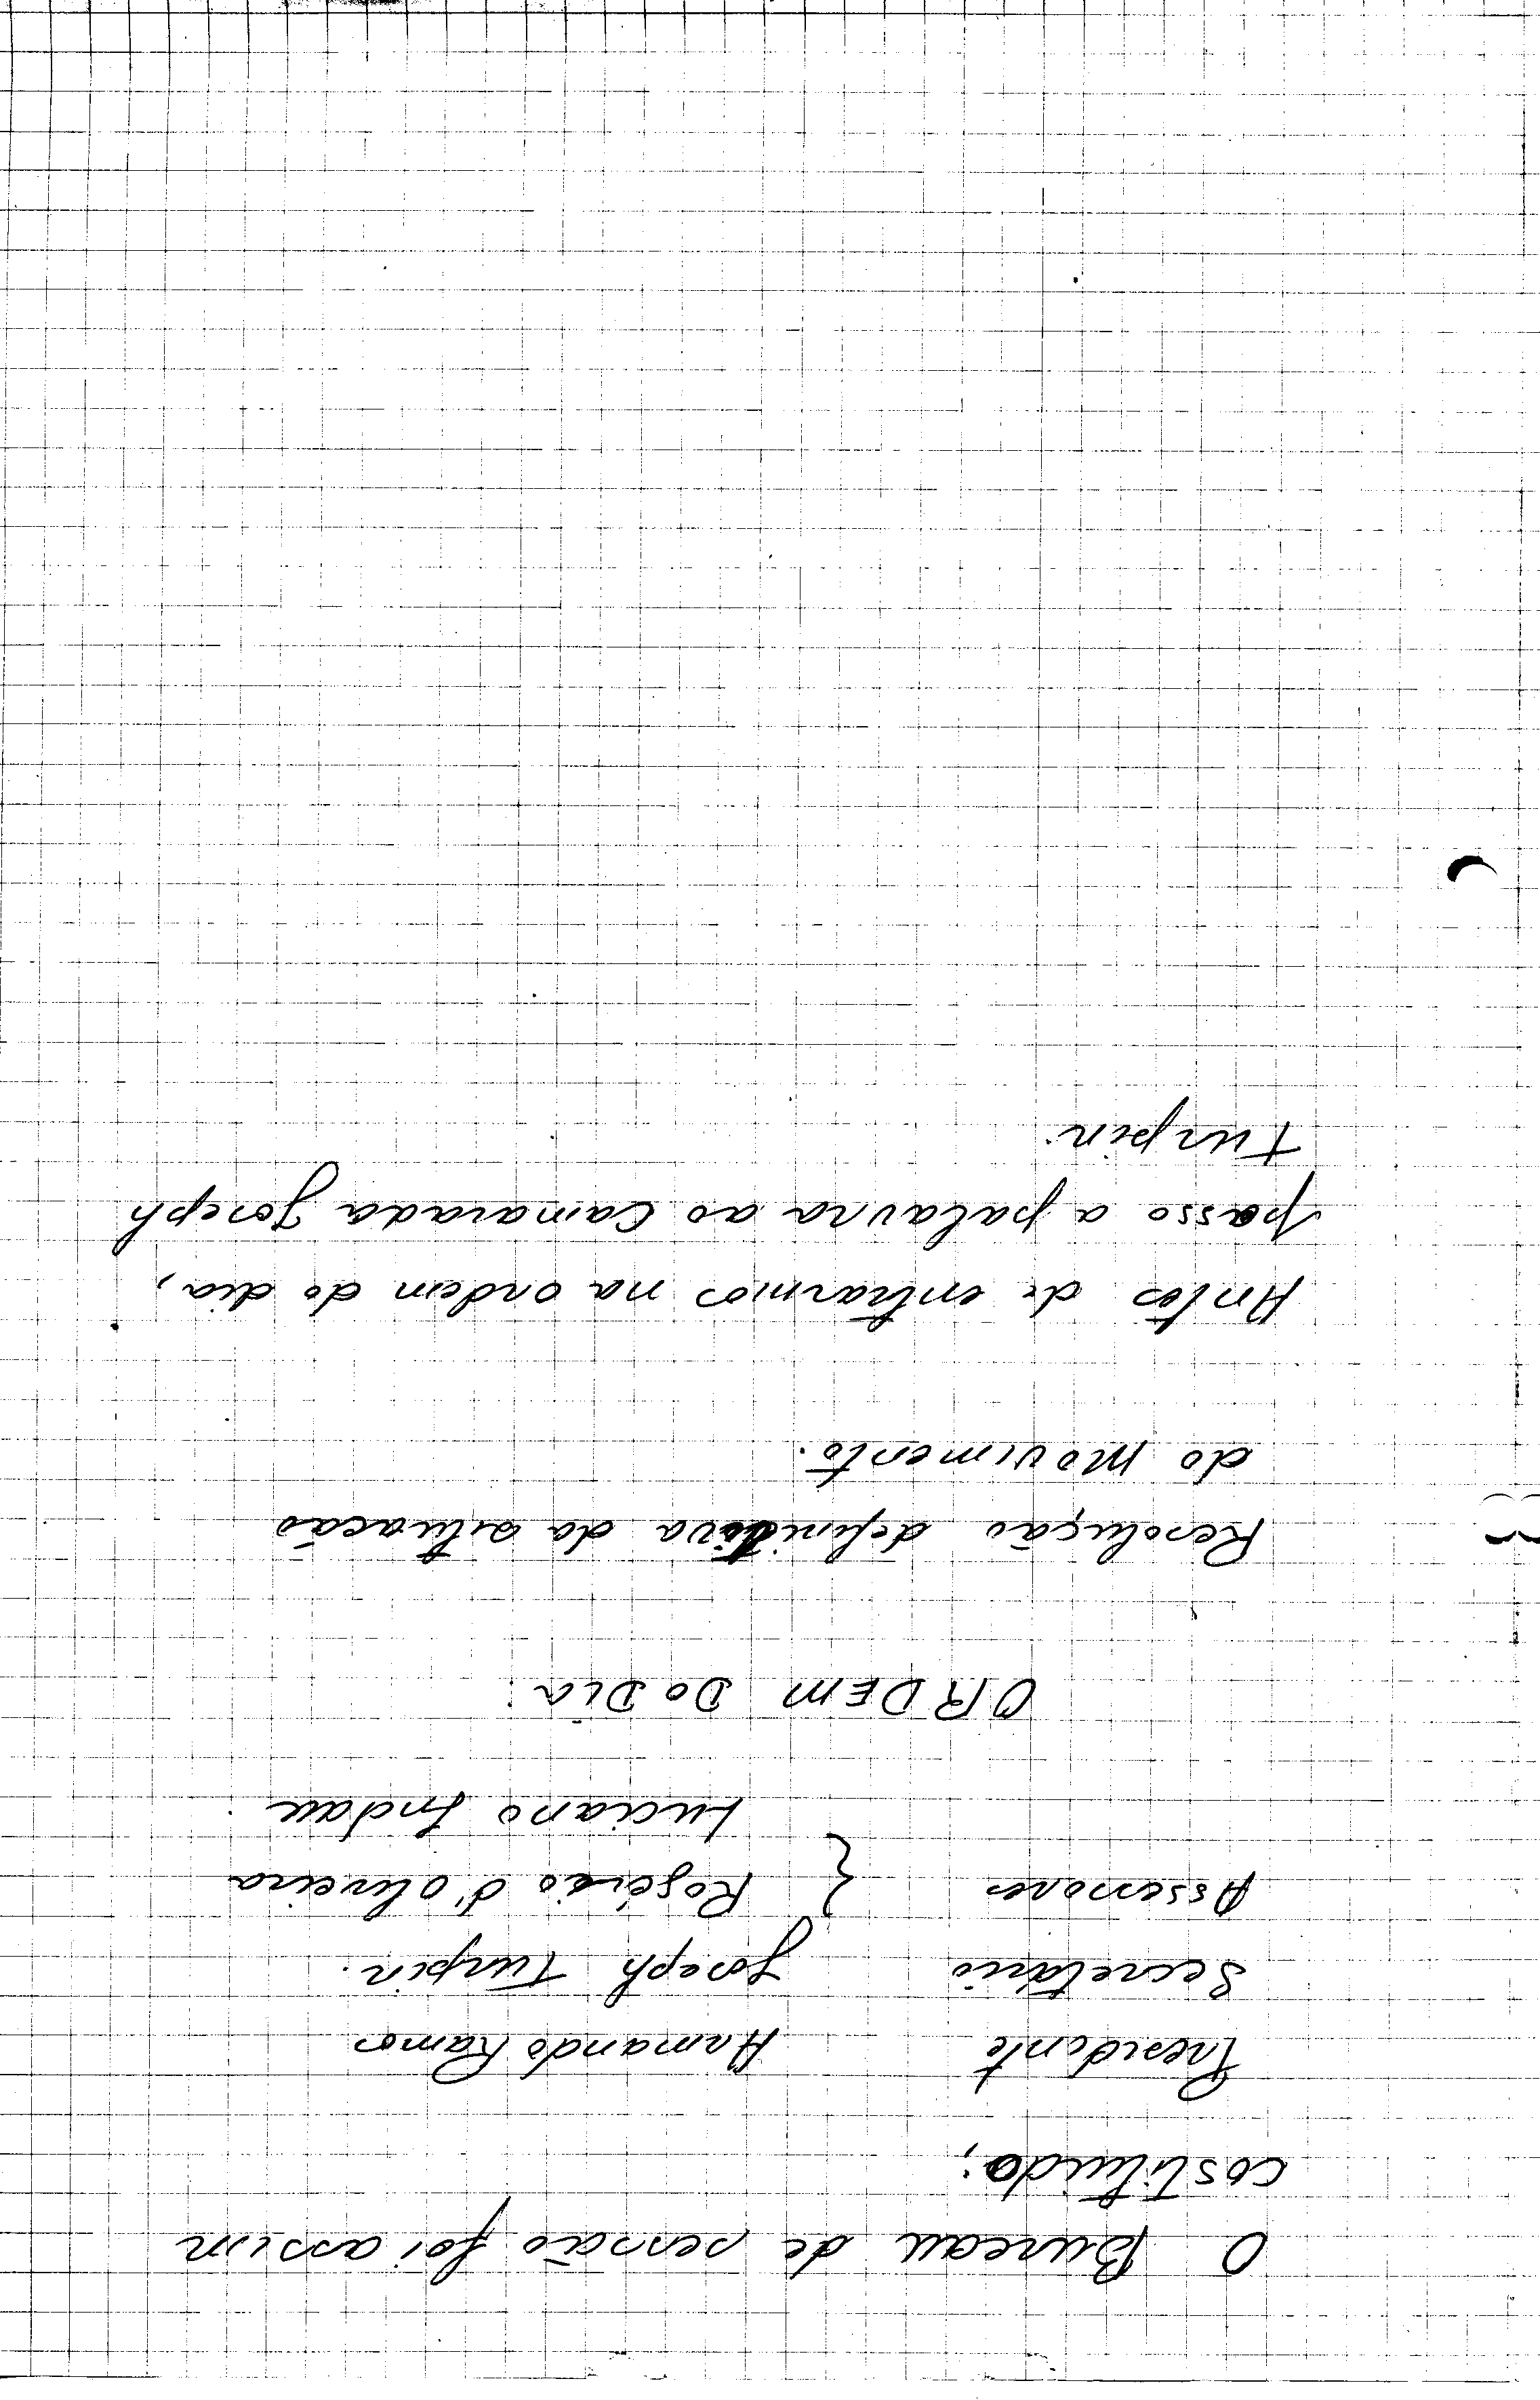 O Bureau de sessão foi assim
costituido;
Presidente Armando Ramos
Secretário Joseph Turpin.
Assessores { Rogério d'Oliveira
Luciano Indau.
ORDEM DO DIA:
Resolução definitiva da situacão
do movimento.
Antes de entrarmos na ordem do dia,
passo a palavra ao Camarada Joseph
Turpin.